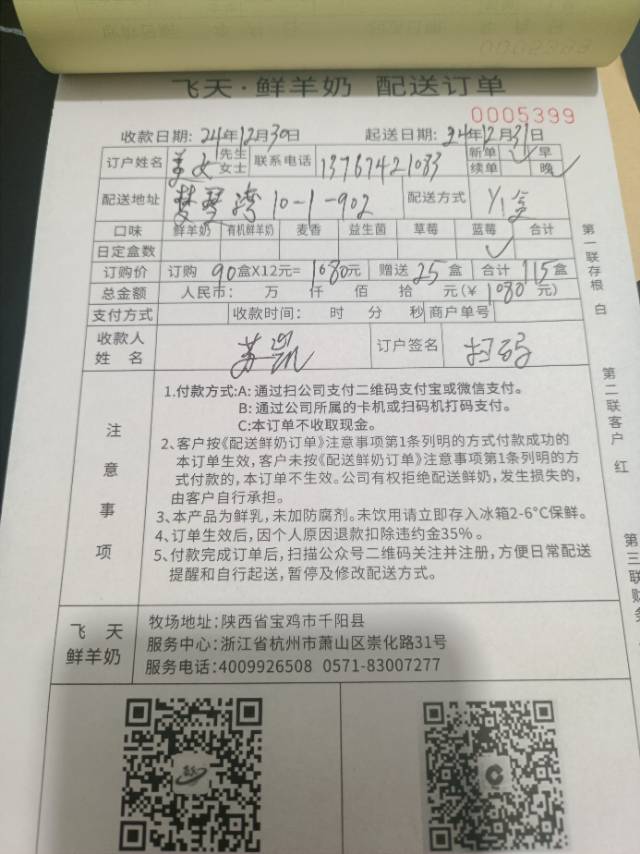 飞天·鲜羊奶 配送订单
0005399
收款日期: 24年12月30日 起送日期: 24年12月31日
订户姓名 美女 先生 女士 联系电话 13767421083 新单 ✓ 早 续单 晚 ✓
配送地址 梦琴湾 10-1-902 配送方式 Y1盒
口味 鲜羊奶 有机鲜羊奶 麦香 益生菌 草莓 蓝莓 合计
日定盒数 ✓
订购价 订购 90盒X12元=1080元 赠送 25盒 合计 115盒
总金额 人民币: 万 仟 佰 拾 元(¥1080元)
支付方式 收款时间: 时 分 秒 商户单号
收款人姓名 苏凯 订户签名 扫码
注意事项
1.付款方式:A: 通过扫公司支付二维码支付宝或微信支付。
B: 通过公司所属的卡机或扫码机打码支付。
C:本订单不收取现金。
2、客户按《配送鲜奶订单》注意事项第1条列明的方式付款成功的
本订单生效,客户未按《配送鲜奶订单》注意事项第1条列明的方
式付款的,本订单不生效。公司有权拒绝配送鲜奶,发生损失的,
由客户自行承担。
3、本产品为鲜乳,未加防腐剂。未饮用请立即存入冰箱2-6°C保鲜。
4、订单生效后,因个人原因退款扣除违约金35%。
5、付款完成订单后,扫描公众号二维码关注并注册,方便日常配送
提醒和自行起送,暂停及修改配送方式。
飞天
鲜羊奶
牧场地址:陕西省宝鸡市千阳县
服务中心:浙江省杭州市萧山区崇化路31号
服务电话:4009926508 0571-83007277
第一联存根 白
第二联客户 红
第三联财务